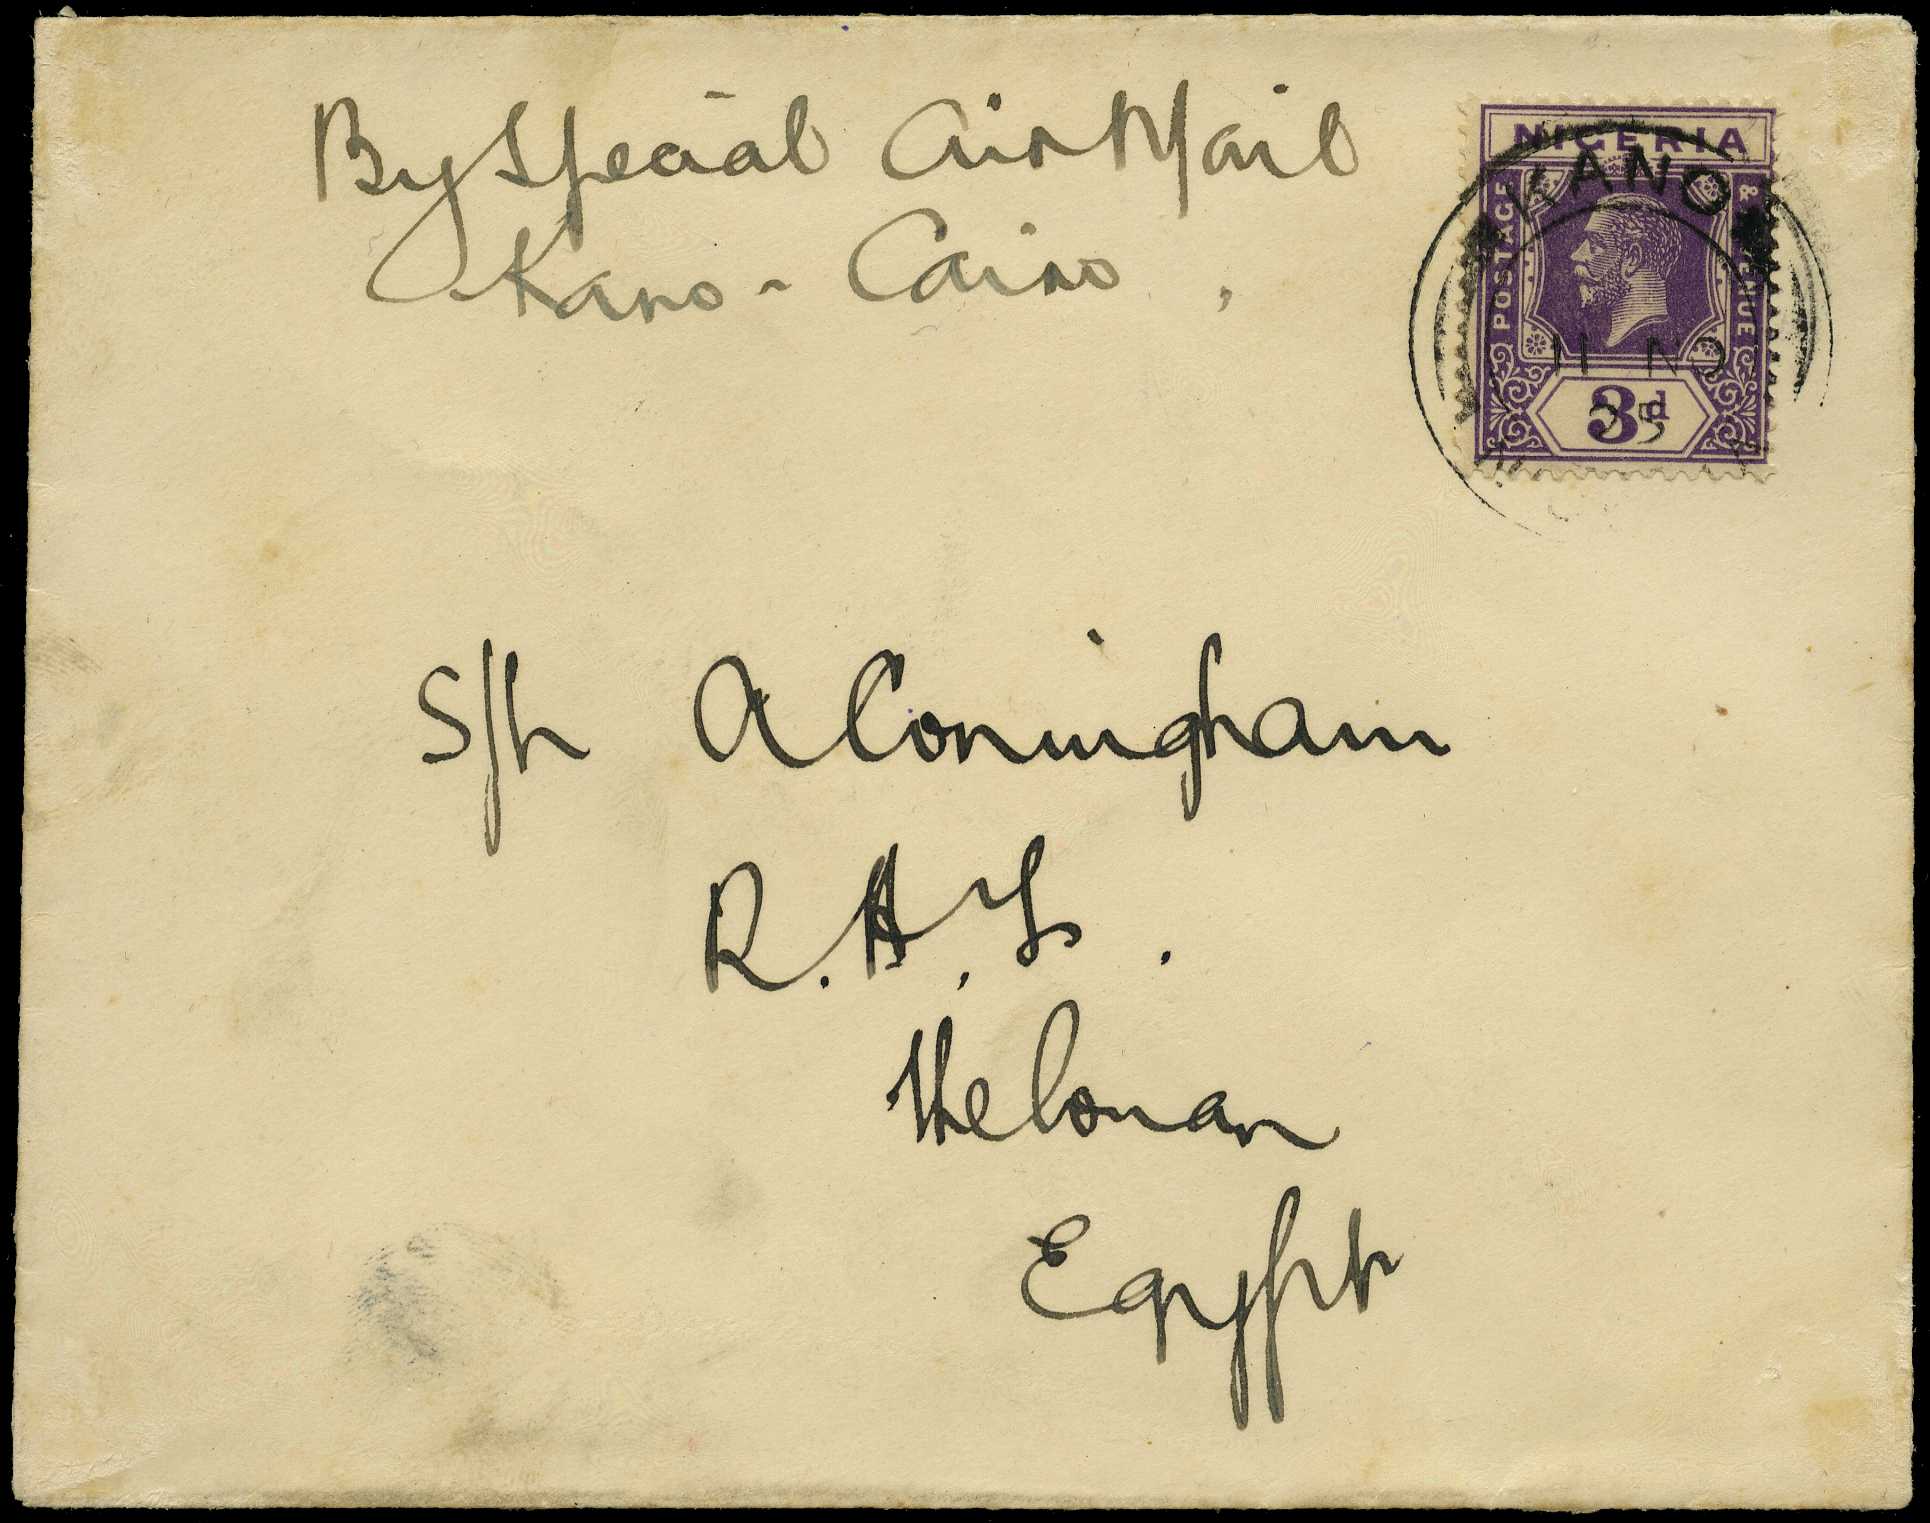 By Special Air Mail
Kano - Cairo
NIGERIA
POSTAGE
& REVENUE
3d
KANO
11 NO
25
S/Ldr A Coningham
R.A.F.
Helouan
Egypt